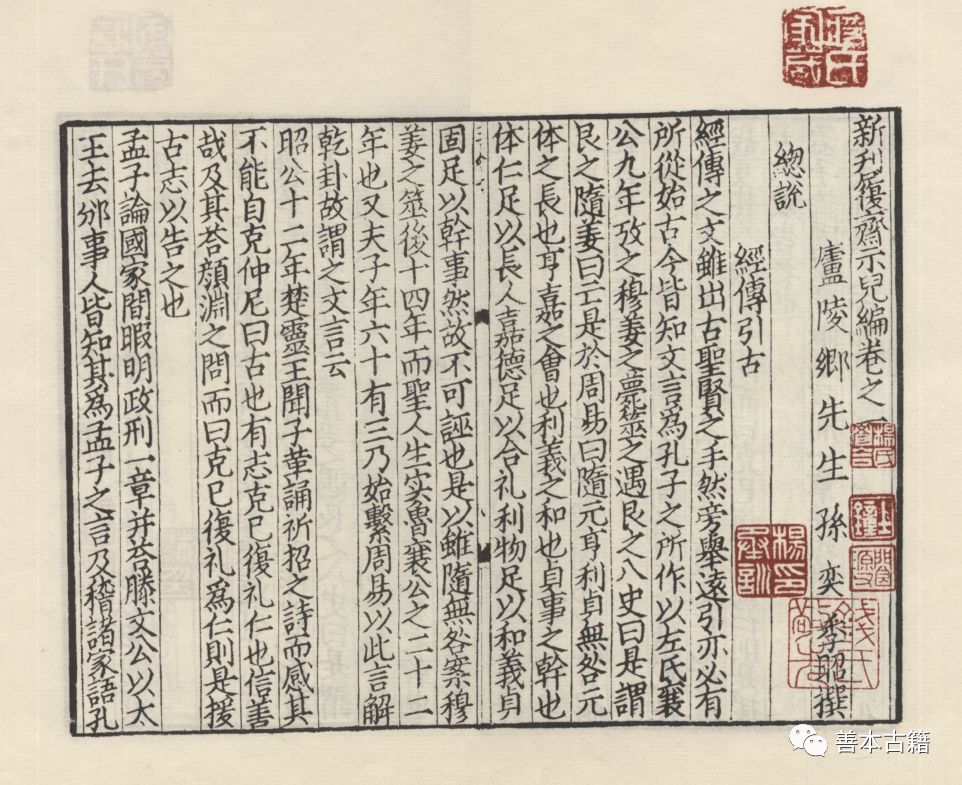 新刋履齋示兒編卷之一
廬陵鄉先生孫奕季昭撰
總説
經傳引古
經傳之文雖出古聖賢之手然旁舉遠引亦必有
所從始古今皆知文言爲孔子之所作以左氏襄
公九年攷之穆姜之薨筮之遇艮之八史曰是謂
艮之隨姜曰云是於周易曰隨元亨利貞無咎元
体之長也亨嘉之會也利義之和也貞事之幹也
体仁足以長人嘉德足以合礼利物足以和義貞
固足以幹事然故不可誣也是以雖隨無咎案穆
姜之筮後十四年而聖人生实魯襄公之二十二
年也又夫子年六十有三乃始繫周易以此言解
乾卦故謂之文言云
昭公十二年楚靈王聞子革誦祈招之詩而感其
不能自克仲尼曰古也有志克已復礼仁也信善
哉及其荅顔淵之問而曰克已復礼爲仁則是援
古志以告之也
孟子論國家閒暇明政刑一章并荅滕文公以太
王去邠事人皆知其爲孟子之言及稽諸家語孔
善本古籍